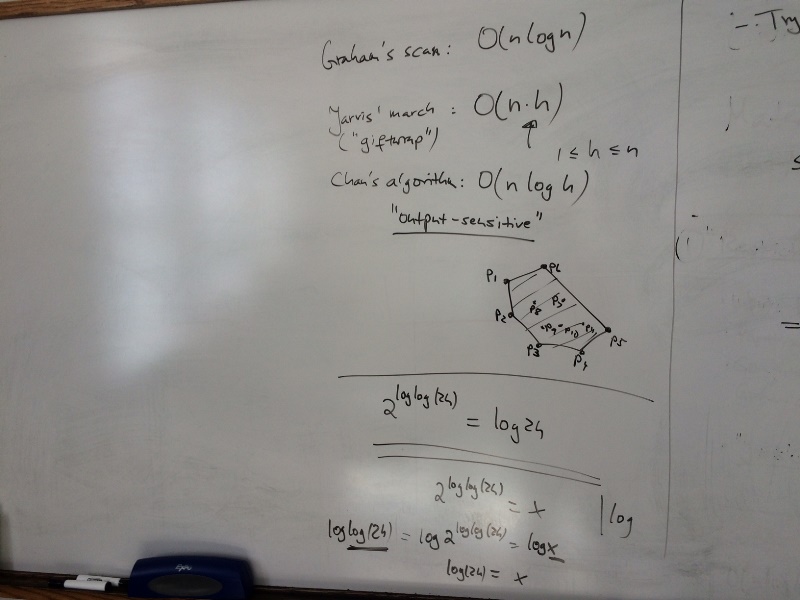 Graham's scan: O(n log n)
Jarvis' march: O(n·h)
("giftwrap")
1 ≤ h ≤ n
Chan's algorithm: O(n log h)
"output-sensitive"
P1
P2
P3
P4
P5
P6
P8
P9
P10
2^loglog(24) = log 24
2^loglog(24) = x | log
loglog(24) = log 2^loglog(24) = log x
log(24) = x
Try